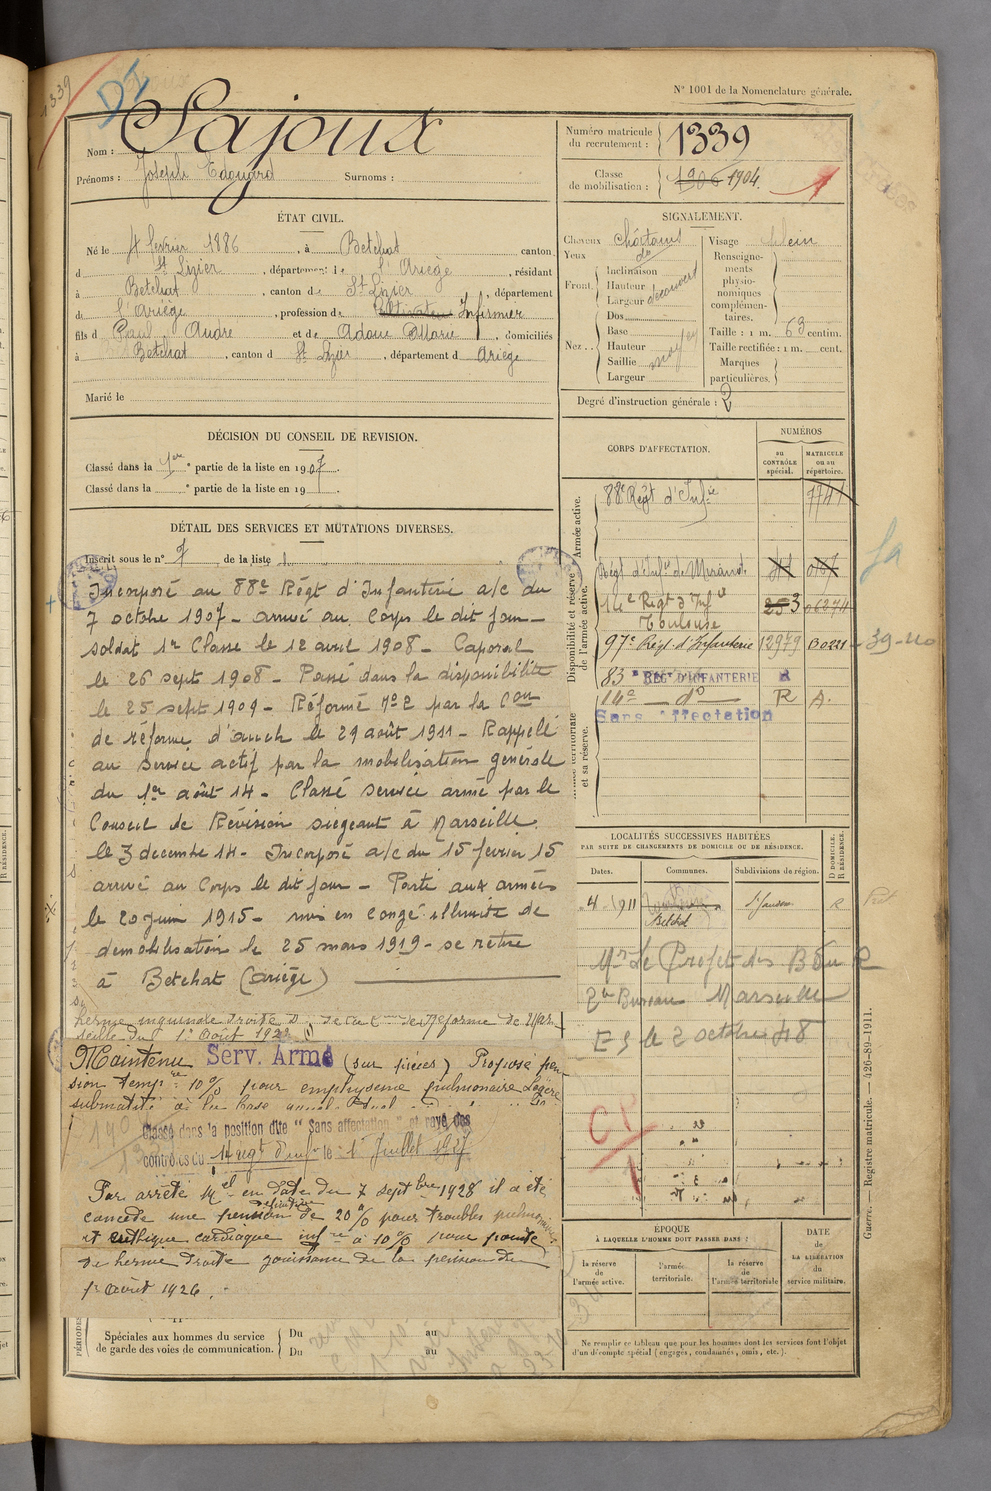 1339
DI
N° 1001 de la Nomenclature générale.
Nom : Sajoux
Prénoms : Joseph Edouard Surnoms :
Numéro matricule du recrutement : 1339
Classe de mobilisation : 1906 1904.
ÉTAT CIVIL.
Né le 4 février 1886, à Betchat canton
d St Lizier, département de l'Ariège, résidant
à Betchat, canton de St Lizier, département
de l'Ariège, profession de Cultivateur Infirmier
fils d Paul André et de Adoue Marie, domiciliés
à Betchat, canton d St Lizier, département d Ariège
Marié le
SIGNALEMENT.
Cheveux châtains
Yeux do
Front. Inclinaison
Hauteur
Largeur découvert
Nez. Dos
Base
Hauteur
Saillie moyen
Largeur
Visage plein
Renseignements physionomiques complémentaires.
Taille : 1 m. 63 centim.
Taille rectifiée : 1 m. cent.
Marques particulières.
Degré d'instruction générale : 2
DÉCISION DU CONSEIL DE REVISION.
Classé dans la 1ère partie de la liste en 1907.
Classé dans la ° partie de la liste en 19 .
DÉTAIL DES SERVICES ET MUTATIONS DIVERSES.
Inscrit sous le n° 7 de la liste 1
Incorporé au 88e Régt d'Infanterie a/c du
7 octobre 1907 - arrivé au Corps le dit jour -
soldat 1re Classe le 12 avril 1908 - Caporal
le 26 sept 1908 - Passé dans la disponibilité
le 25 sept 1909 - Réformé N° 2 par la Con
de réforme d'Auch le 29 août 1911 - Rappelé
au service actif par la mobilisation générale
du 1er août 14 - Classé service armé par le
Conseil de Révision siégeant à Marseille
le 3 decembre 14 - Incorporé a/c du 15 février 15
arrivé au Corps le dit jour - Parti aux armées
le 20 juin 1915 - mis en congé illimité de
demobilisation le 25 mars 1919 - se retire
à Betchat (Ariège)
hernie inguinale droite de Réforme de Mar
seille du 1er Août 192
Maintenu Serv. Armé (sur pièces) Proposé pen
sion temp.re 10% pour emphysème pulmonaire Légère
submatité à la base
Classé dans la position dite "Sans affectation" et rayé des
contrôles du 14 regt d'inf le 1er Juillet 1927
Par arrêté Mel en date du 7 septbre 1928 il a été
concédé une pension définitive de 20% pour troubles pulmonaires
et cardiaque infre à 10% pour pointe
de hernie droite jouissance de la pension du
1er Août 1926.
Spéciales aux hommes du service
de garde des voies de communication.
Du au
Du au
CORPS D'AFFECTATION.
NUMÉROS
au CONTRÔLE spécial.
MATRICULE ou au répertoire.
Armée active.
88e Régt d'Infie 7741
Disponibilité et réserve de l'armée active.
Régt d'Infie de Mirande
14e Régt d'Infie 253 06274
Toulouse
97e Régt d'Infanterie 12979 B0221 - 39-40
83 e RÉGt D'INFANTERIE
14e — do — R A.
Sans Affectation
et sa réserve.
LOCALITÉS SUCCESSIVES HABITÉES
PAR SUITE DE CHANGEMENTS DE DOMICILE OU DE RÉSIDENCE.
Dates. Communes. Subdivisions de région.
D DOMICILE. R RÉSIDENCE.
1911 Betchat St Gaudens R
Mr Le Préfet des B du R
2e Bureau Marseille
ES le 2 octobre 48
CP
1
ÉPOQUE
À LAQUELLE L'HOMME DOIT PASSER DANS :
la réserve de l'armée active.
l'armée territoriale.
la réserve de l'armée territoriale
DATE de LA LIBÉRATION du service militaire.
Ne remplir ce tableau que pour les hommes dont les services font l'objet
d'un décompte spécial (engagés, condamnés, omis, etc.).
Guerre. — Registre matricule. — 426-89-1911.